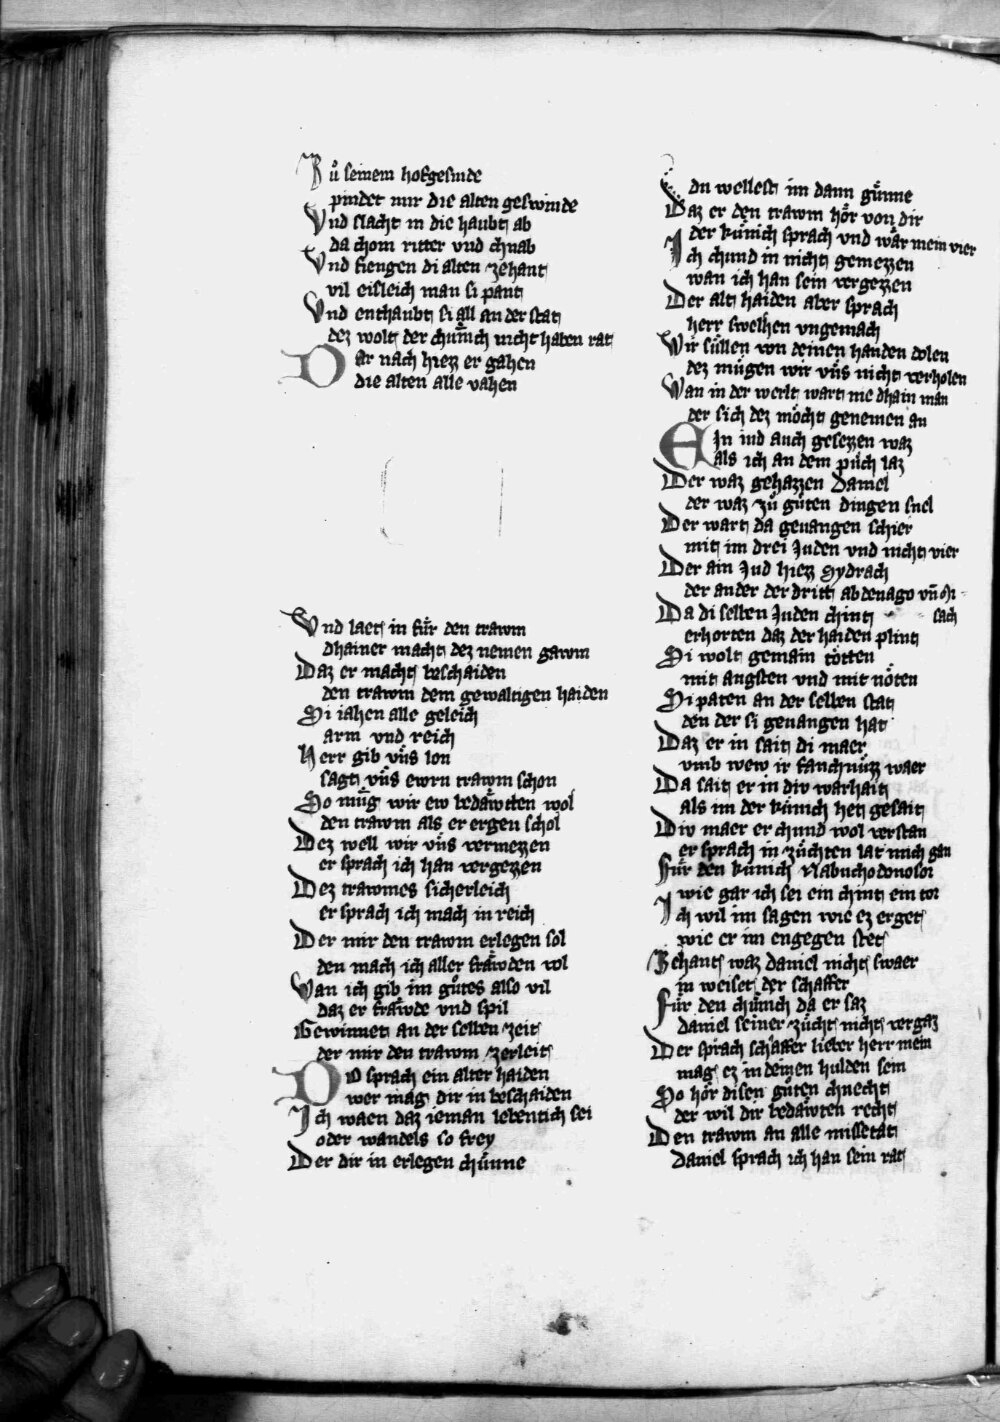 Zů seinem hofgesinde
pindet mir die alten geswinde
Vnd slacht in die haubt ab
da chom ritter vnd chnab
Vnd fiengen di alten zehant
vil eisleich man si pant
Vnd enthaubt si all an der stat
dez wolt der chünich nicht haben rat
Dar nach hiezz er gahen
die alten alle vahen
Vnd laet in für den trawm
dhainer macht dez nemen gawm
Daz er macht beschaiden
den trawm dem gewaltigen haiden
Si iahen alle geleich
arm vnd reich
Herr gib vns lon
sagt vns ewrn trawm schon
So müg wir ew bedäwtten wol
den trawm als er ergen schol
Dez well wir vns vermezzen
er sprach ich han vergezzen
Dez trawmes sicherleich
er sprach ich mach in reich
Der mir den trawm erlegen sol
den mach ich aller fräwden vol
Wan ich gib im gůtes also vil
daz er fräwde vnd spil
Gewinnet an der selben zeit
der mir den trawm zerleit
Do sprach ein alter haiden
wer mag dir in beschaiden
Ich waen daz ieman lebentich sei
oder wandels so frey
Der dir in erlegen chünne
du wellest im dann günne
Daz er den trawm hör von dir
der künich sprach vnd wär mein vier
Ich chund in nicht gemezzen
wan ich han sein vergezzen
Der alt haiden aber sprach
herr swelhen vngemach
Wir süllen von deinen handen dolen
dez mügen wir vns nicht verholen
Wan in der werlt wart nie dhain man
der sich dez möcht genemen an
Ein iud auch gesezzen waz
als ich an dem půch laz
Der waz gehazzen Daniel
der waz zů gůten dingen snel
Der wart da geuangen schier
mit im drei Juden vnd nicht vier
Der ain Jud hiezz Sydrach
der ander der dritt abdenago vn̄ Mi-
sach
Da di selben Juden chint
erhorten daz der haiden plint
Si wolt gemain tötten
mit angsten vnd mit nöten
Si paten an der selben stat
den der si geuangen hat
Daz er in sait di maer
vmb wew ir fanchnüzz waer
Da sait er in div warhait
als im der künich het gesait
Div maer er chund wol verstan
er sprach in züchten lat mich gan
Für den künich Nabuchodonosor
wie gar ich sei ein chint ein tor
Ich wil im sagen wie ez erget
wie er im engegen stet
Zehant waz daniel nicht swaer
in weiset der schaffer
Für den chünich da er saz
daniel seiner zücht nicht vergaz
Der sprach schaffer lieber herr mein
mag ez in deinen hulden sein
So hör disen gůten chnecht
der wil dir bedäwten recht
Den trawm an alle missetat
Daniel sprach ich han sein rat